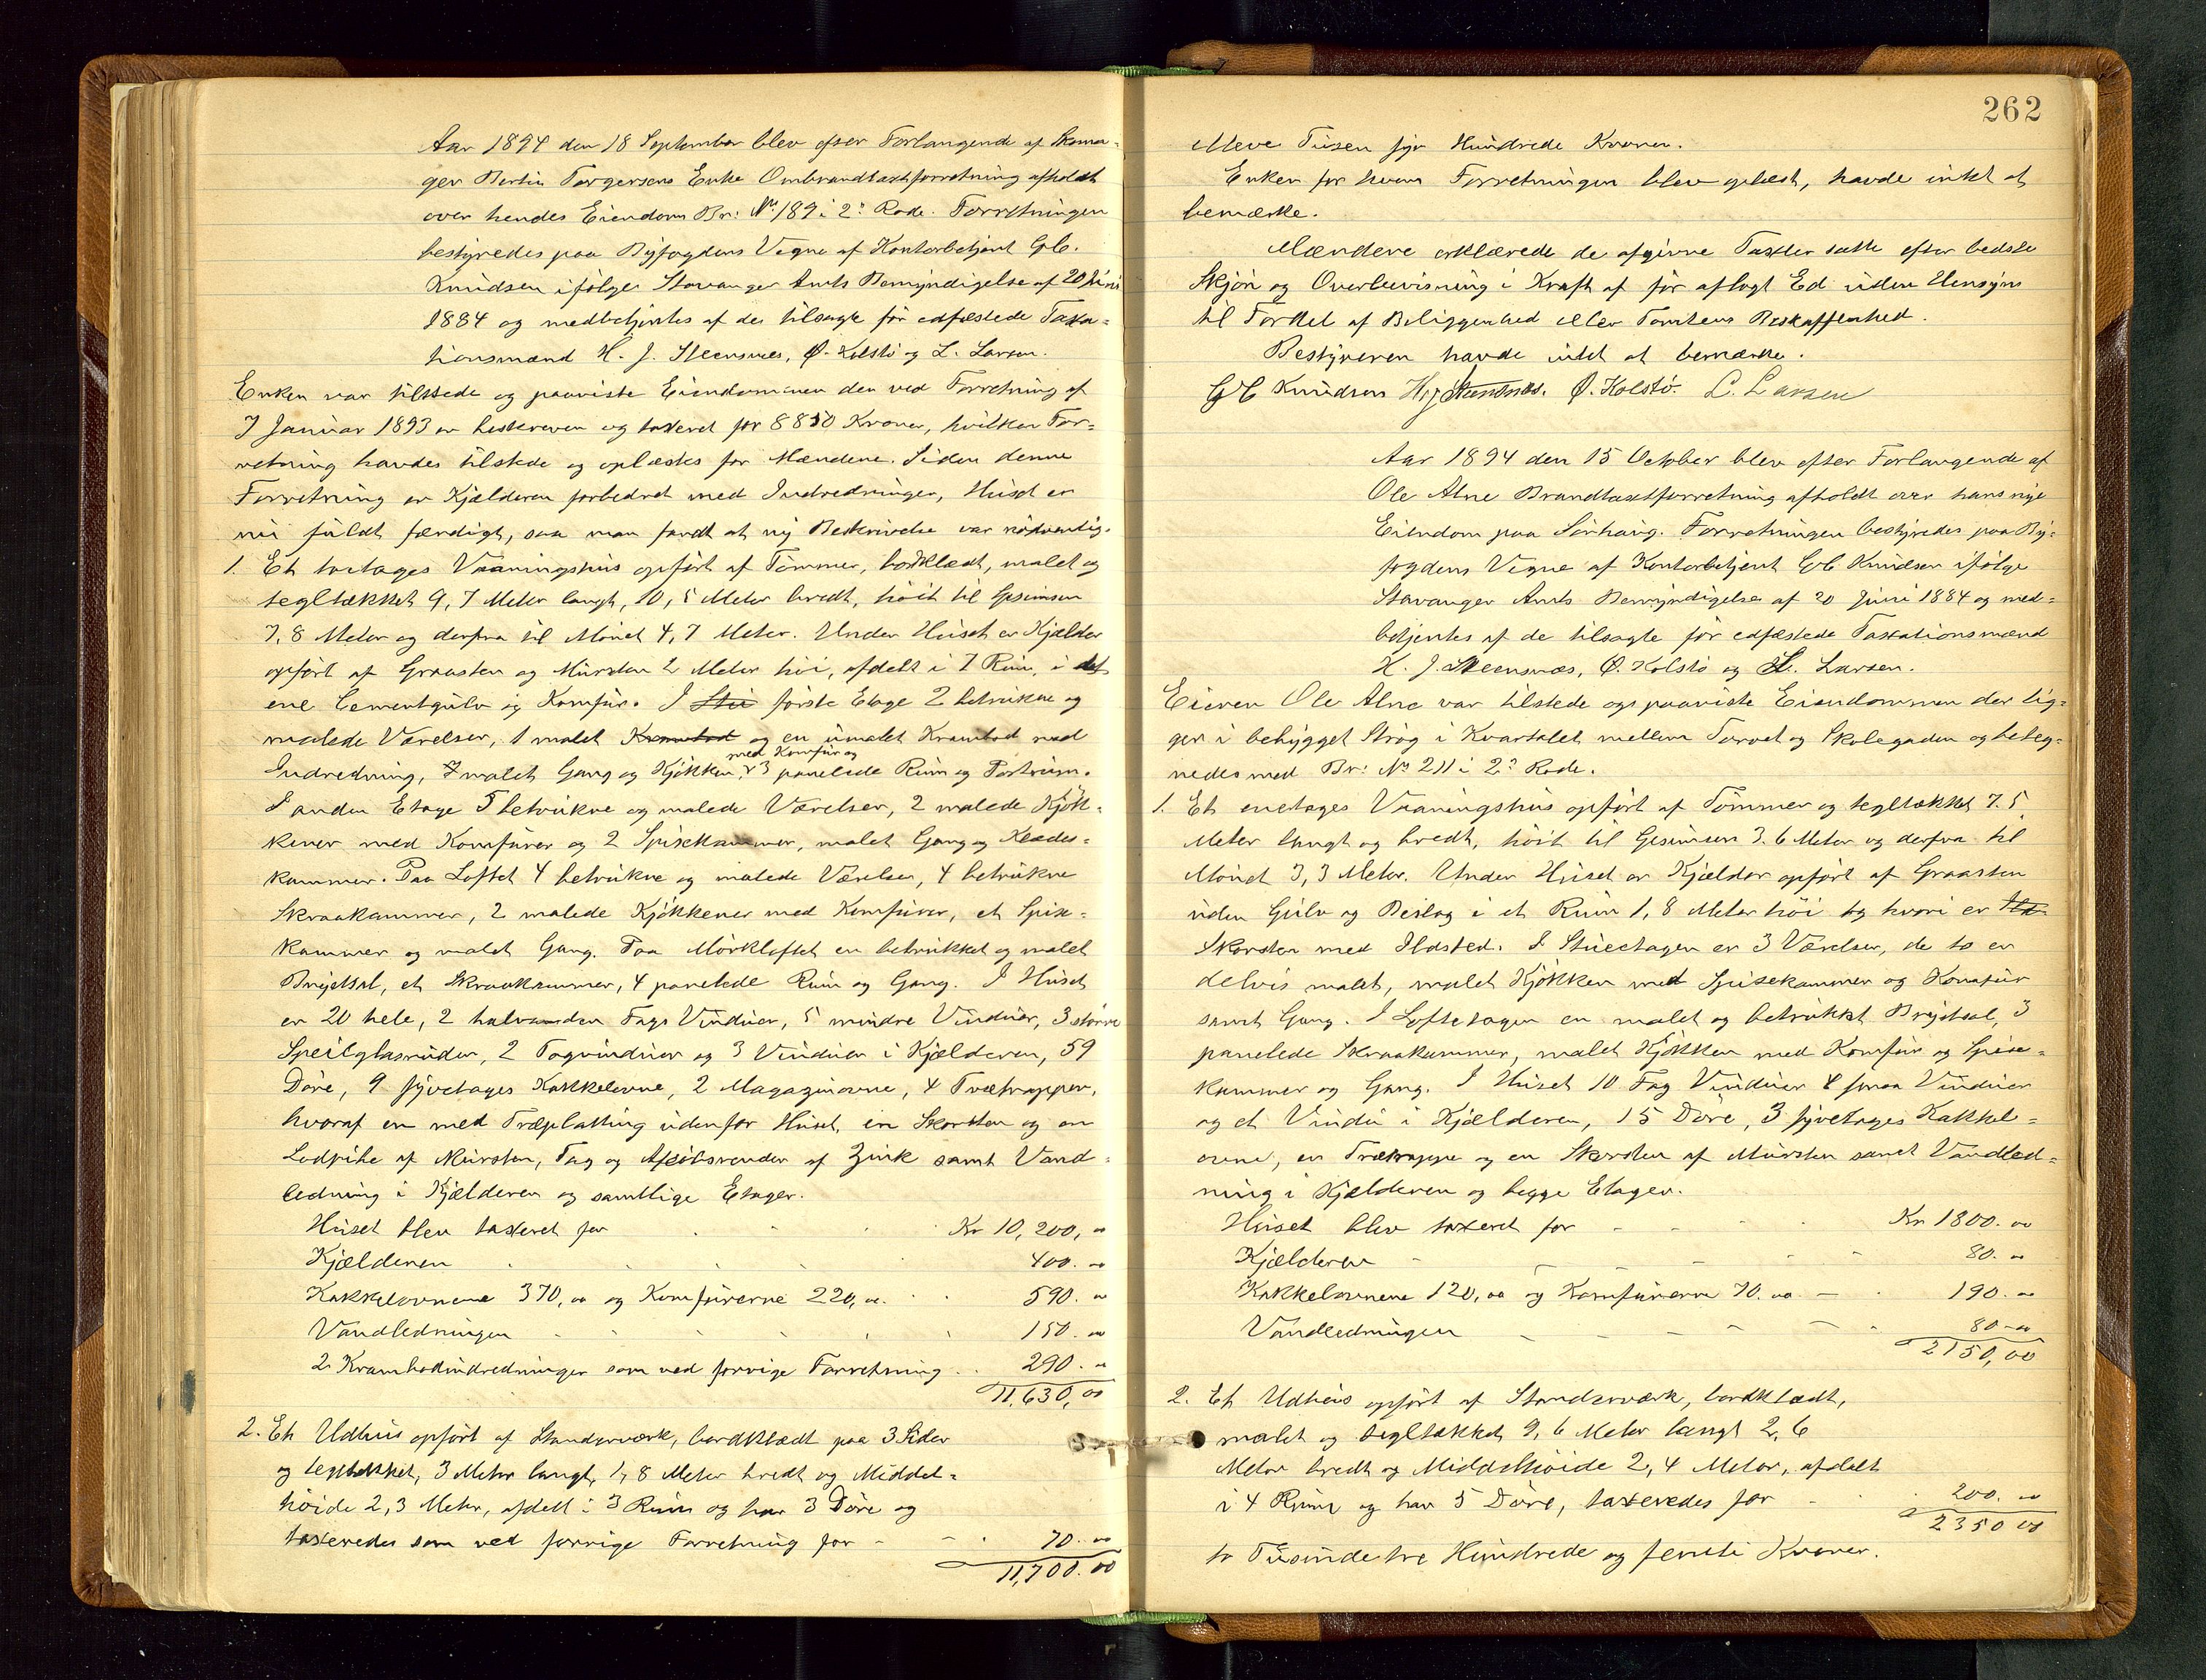 Aar 1894 den 18 September blev efter Forlangende af Skoma-
ger Bertin Torgersens Enke Ombrandtaxtforretning afholdt
over hendes Eiendom Br: No 189 i 2: Rode. Forretningen
bestyredes paa Byfogdens Vegne af Kontorbetjent G.C.
Knudsen ifølge Stavanger Amts Bemyndigelse af 20 Juni
1884 og medbetjentes af de tilsagte før edfæstede Taxa-
tionsmænd H. J. Steensnæs, Ø. Kolstø og L. Larsen.
Enken var tilstede og paaviste Eiendommen der ved Forretning af
7 Januar 1893 er beskreven og taxeret for 8850 Kroner, hvilken For=
retning havdes tilstede og oplæstes for Mændene. Siden denne
Forretning er Kjælderen forbedret med Indredninger, Huset er
nu fuldt færdigt, saa man fandt at ny Beskrivelse var nødvendig.
1. Et toetages Vaaningshus opført af Tømmer, bordklædt, malet og
tegltækket 9,7 Meter langt, 10,5 Meter bredt, høit til Gesimsen
7,8 Meter og derfra til Mønet 4,7 Meter. Under Huset er Kjælder
opført af Graasten og Mursten 2 Meter høi, afdelt i 7 Rum, i det
ene Cementgulv og Komfur. I Stu første Etage 2 betrukne og
malede Værelser, 1 malet Krambod og en umalet Krambod med
Indredning, 2 malet Gang og Kjøkken med Komfur og 3 panelede Rum og Portrum.
I anden Etage 5 betrukne og malede Værelser, 2 malede Kjøk-
kener med Komfurer og 2 Spisekammer, malet Gang og Klædes=
kammer. Paa Loftet 4 betrukne og malede Værelser, 4 betrukne
Skraakammer, 2 malede Kjøkkener med Komfurer, et Spise-
kammer og malet Gang. Paa Mørkloftet en betrukket og malet
Brystsal, et Skraakammer, 4 panelede Rum og Gang. I Huset
er 20 hele, 2 halvanden Fags Vinduer, 5 mindre Vinduer, 3 større
Speilglasruder, 2 Tagvinduer og 3 Vinduer i Kjælderen, 59
Døre, 9 fyvetages Kakkelovne, 2 Magazinovne, 4 Trætrapper,
hvoraf en med Træplatting udenfor Huset, en Skorsten og en
Lodpibe af Mursten, Tag og Afløbsrender af Zink samt Vand-
ledning i Kjælderen og samtlige Etager.
Huset blev taxeret for Kr 10,200,00
Kjælderen 400.00
Kakkelovnene 370,00 og Komfurerne 220,00. 590.00
Vandledningen 150.00
2 Krambodindredninger som ved forrige Forretning 290.00
11,630,00
2. Et Udhus opført af Standerværk, bordklædt paa 3 Sider
og tegltækket, 3 Meter langt, 1,8 Meter bredt og Middel=
høide 2,3 Meter, afdelt i 3 Rum og har 3 Døre og
taxeredes som ved forrige Forretning for - 70.00
11,700.00
262
Elleve Tusen syv Hundrede Kroner.
Enken for hvem Forretningen blev oplæst, havde intet at
bemærke.
Mændene erklærede de afgivne Taxter satte efter bedste
Skjøn og Overbevisning i Kraft af før aflagt Ed uden Hensyn
til Fordel af Beliggenhed eller Tomtens Beskaffenhed.
Bestyreren havde intet at bemærke.
G C Knudsen H J Steensnæs. Ø. Kolstø. L. Larsen
Aar 1894 den 15 October blev efter Forlangende af
Ole Alne Brandtaxtforretning afholdt over hans nye
Eiendom paa Sørhaug. Forretningen bestyredes paa By=
fogdens Vegne af Kontorbetjent G C Knudsen ifølge
Stavanger Amts Bemyndigelse af 20 Juni 1884 og med=
betjentes af de tilsagte før edfæstede Taxationsmænd
H. J. Steensnæs, Ø. Kolstø og L. Larsen.
Eieren Ole Alne var tilstede og paaviste Eiendommen der lig=
ger i bebygget Strøg i Kvartalet mellem Torvet og Skolegaden og beteg=
nedes med Br: No 211 i 2: Rode.
1. Et enetages Vaaningshus opført af Tømmer og tegltækket 7.5
Meter langt og bredt, høit til Gesimsen 3.6 Meter og derfra til
Mønet 3,3 Meter. Under Huset er Kjælder opført af Graasten
uden Gulv og Beslag i et Rum 1,8 Meter høi og hvori er
Skorsten med Ildsted. I Stueetagen er 3 Værelser, de to er
delvis malet, malet Kjøkken med Spisekammer og Komfur
samt Gang. I Loftetagen en malet og betrukket Brystsal, 3
panelede Skraakammer, malet Kjøkken med Komfur og Spise=
kammer og Gang. I Huset 10 Fag Vinduer 4 smaa Vinduer
og et Vindu i Kjælderen, 15 Døre, 3 fyvetages Kakkel=
ovne, en Trætrappe og en Skorsten af Mursten samt Vandled=
ning i Kjælderen og begge Etager.
Huset blev taxeret for Kr 1800.00
Kjælderen 80.00
Kakkelovnene 120,00 og Komfurerne 70.00 190.00
Vandledningen 80-00
2150,00
2. Et Udhus opført af Standerværk, bordklædt,
malet og tegltækket 9,6 Meter langt 2,6
Meter bredt og Middelhøide 2,4 Meter, afdelt
i 4 Rum og har 5 Døre, taxeredes for 200.00
2350 00
to Tusinde tre Hundrede og femti Kroner.